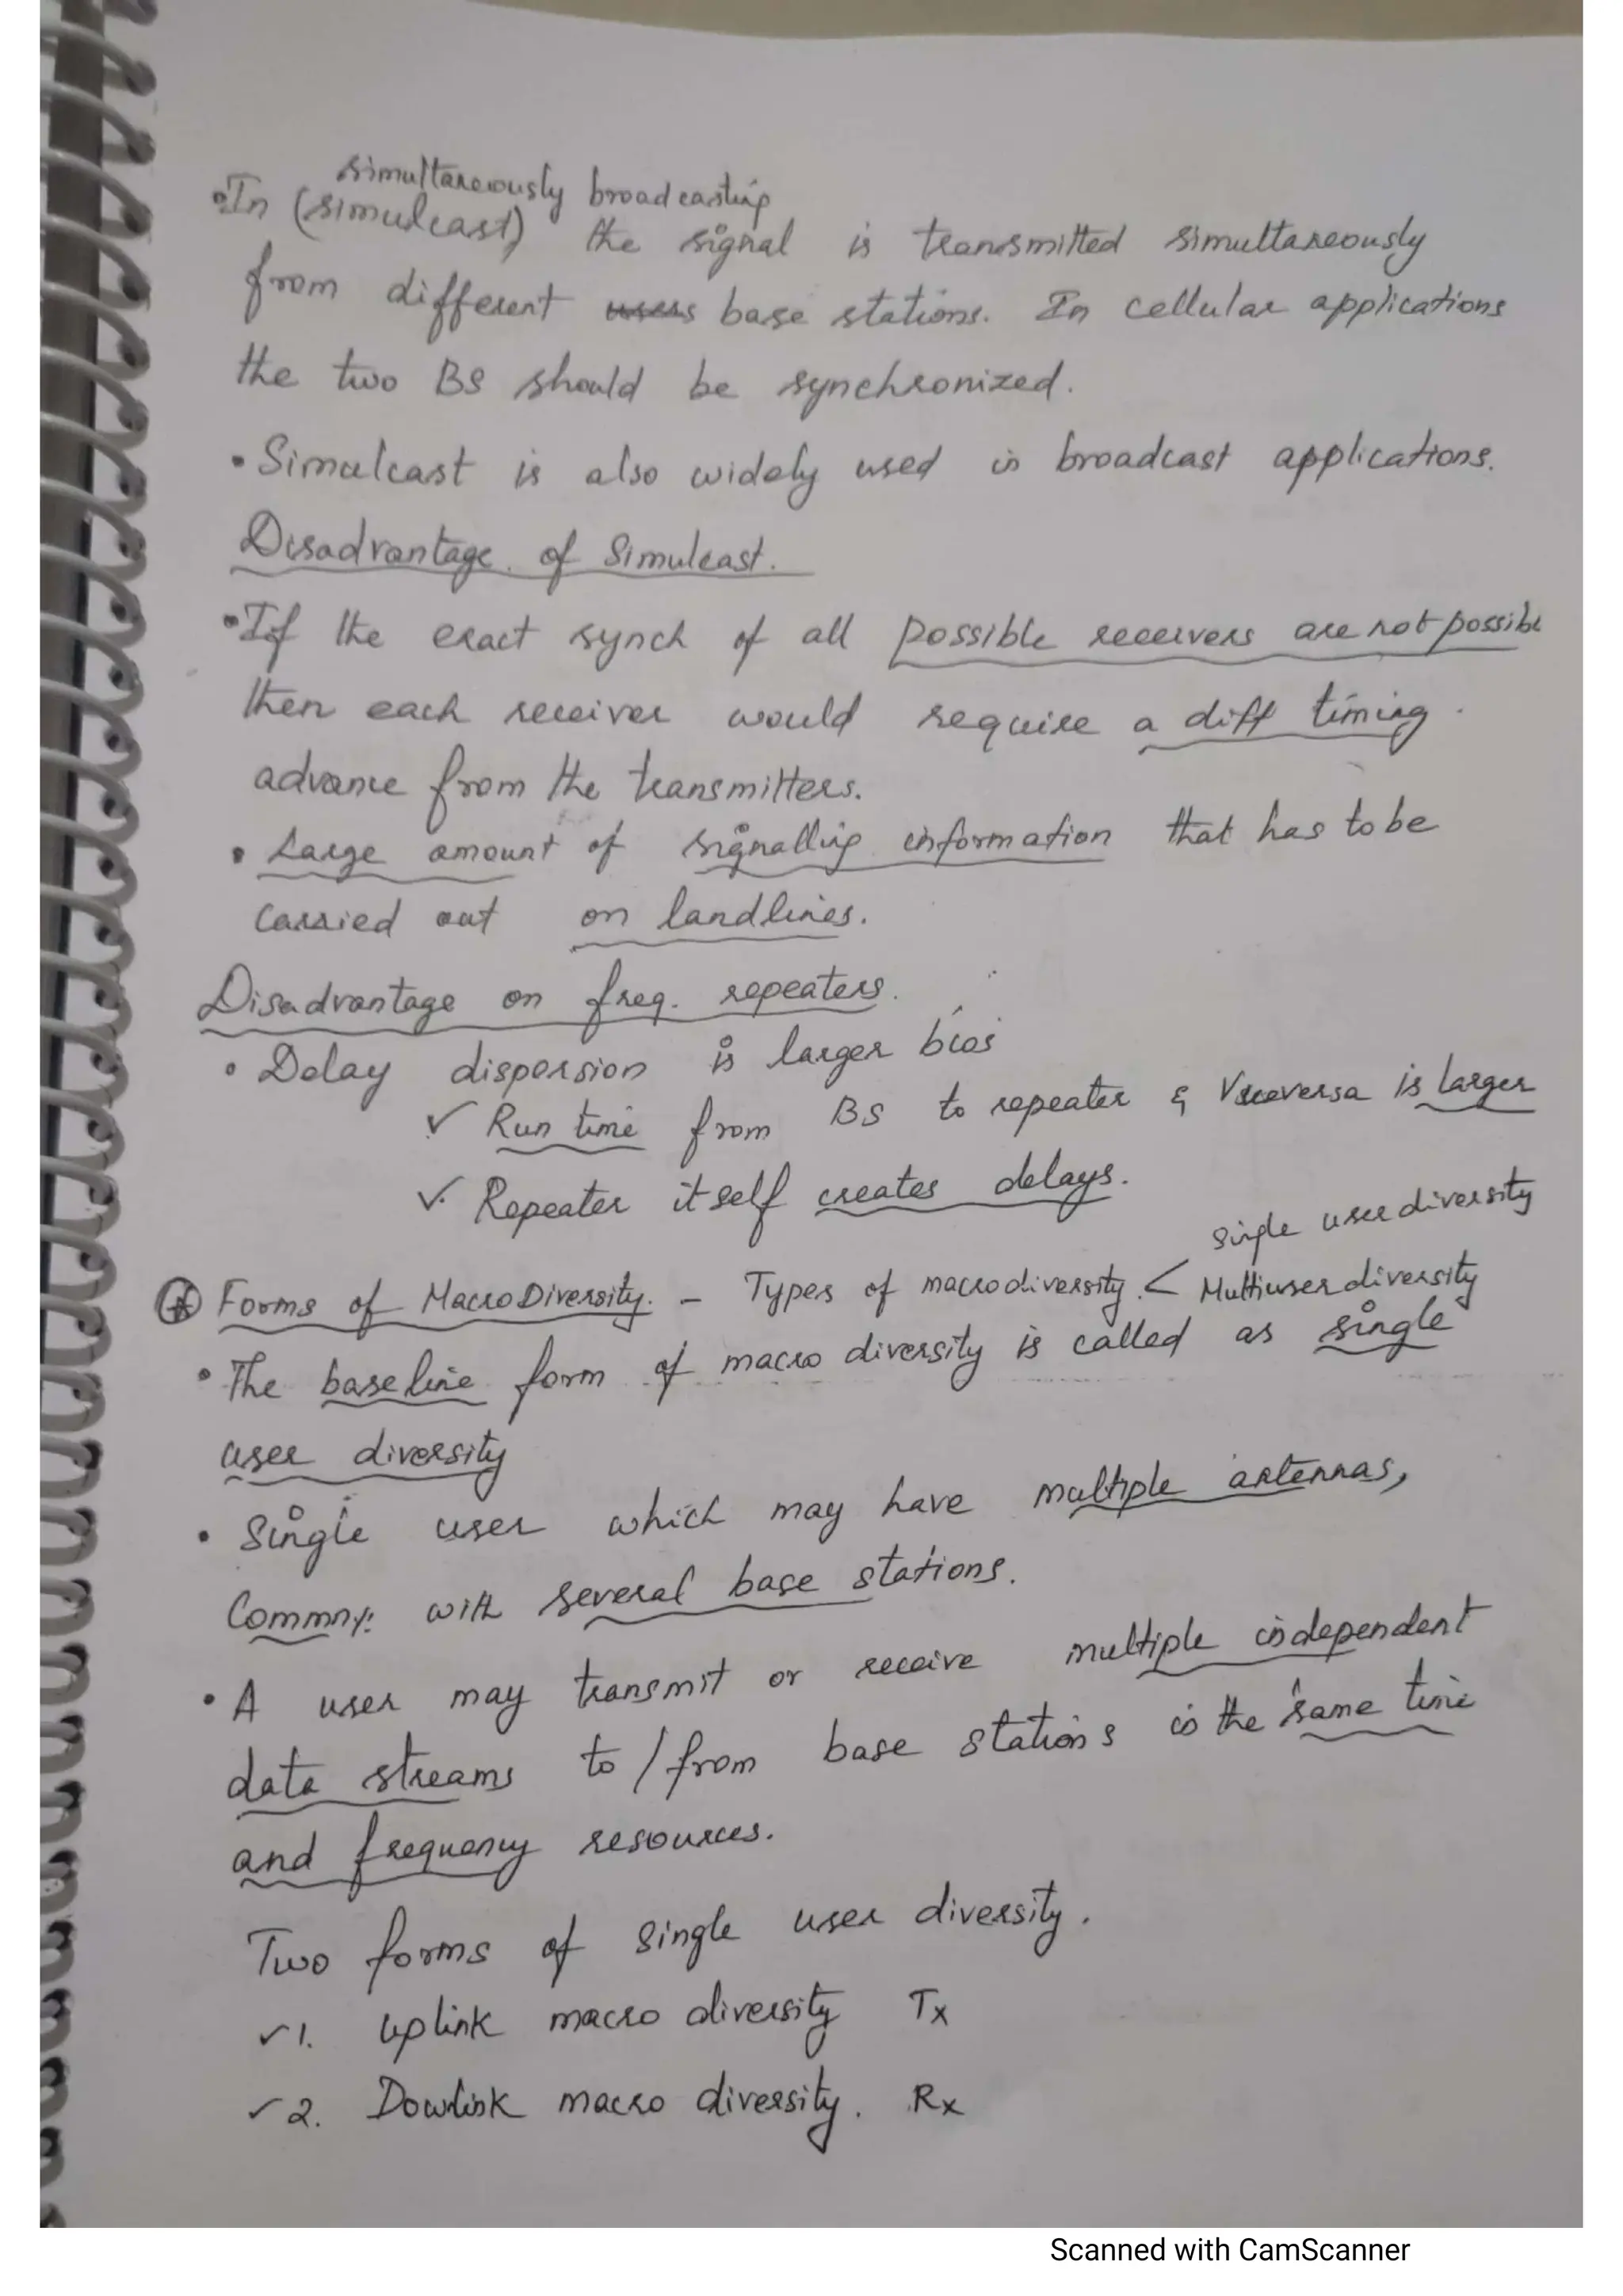 simultaneously broadcasting
•In (simulcast) the signal is transmitted simultaneously
from different users base stations. In cellular applications
the two BS should be synchronized.
•Simulcast is also widely used in broadcast applications.
Disadvantage of Simulcast.
•If the exact synch of all possible receivers are not possible
then each receiver would require a diff timing
advance from the transmitters.
• Large amount of signalling information that has to be
carried out on landlines.
Disadvantage on freq. repeaters.
• Delay dispersion is larger bcos
✓ Run time from BS to repeater & Viceversa is larger
✓ Repeater itself creates delays.
single user diversity
Forms of MacroDiversity. - Types of macrodiversity. < Multiuser diversity
•The baseline form of macro diversity is called as single
user diversity
• Single user which may have multiple antennas,
with several base stations.
• A user may transmit or receive multiple independent
data streams to/from base stations in the same time
and frequency resources.
Two forms of single user diversity.
✓1. Uplink macro diversity Tx
✓2. Dowlink macro diversity. Rx
Scanned with CamScanner